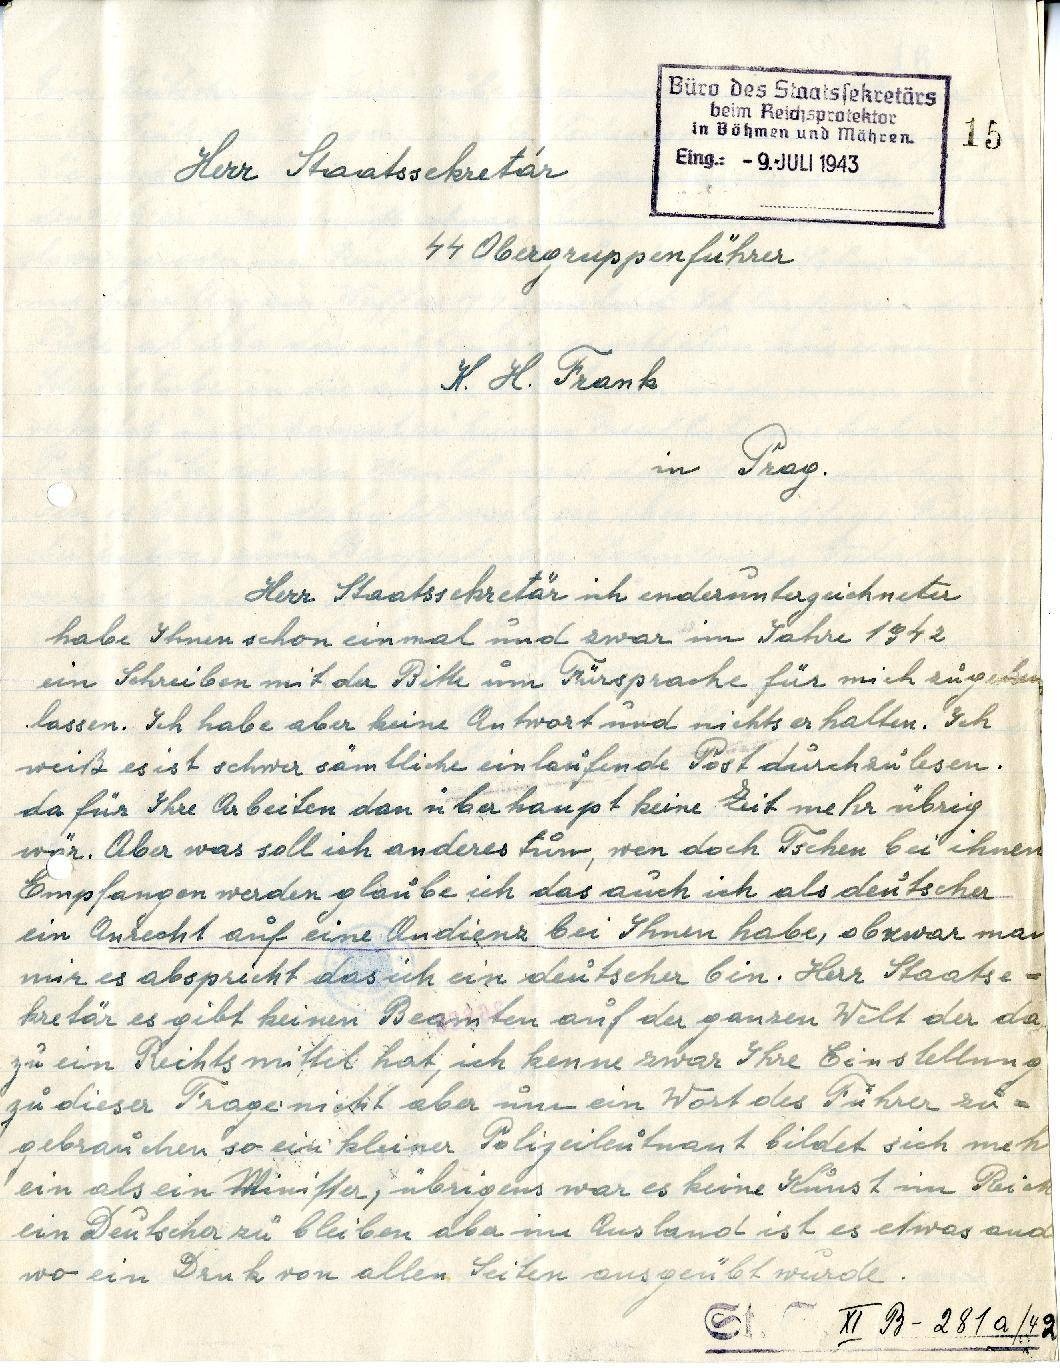 Büro des Staatssekretärs
beim Reichsprotektor
in Böhmen und Mähren.
Eing.: - 9. JULI 1943
15
Herr Staatssekretär
SS Obergruppenführer
K. H. Frank
in Prag.
Herr Staatssekretär ich enderunterzeichneter
habe Ihnen schon einmal und zwar im Jahre 1942
ein Schreiben mit der Bitte um Fürsprache für mich zugehen
lassen. Ich habe aber keine Antwort und nichts erhalten. Ich
weiß es ist schwer sämtliche einlaufende Post durchzulesen.
da für Ihre Arbeiten dan überhaupt keine Zeit mehr übrig
wär. Aber was soll ich anderes tun, wen doch Tschen bei ihnen
Empfangen werden glaube ich das auch ich als deutscher
ein Anrecht auf eine Audienz bei Ihnen habe, obzwar man
mir es abspricht das ich ein deutscher bin. Herr Staatse=
kretär es gibt keinen Beamten auf der ganzen Welt der da
zu ein Rechtsmittel hat, ich kenne zwar Ihre Einstellung
zu dieser Frage nicht aber um ein Wort des Führer zu=
gebrauchen so ein kleiner Polizeileutnant bildet sich meh
ein als ein Minister, übrigens war es keine Kunst im Reich
ein Deutscher zu bleiben aber im Ausland ist es etwas and
wo ein Druk von allen Seiten ausgeübt wurde.
St. XI B - 281a/42